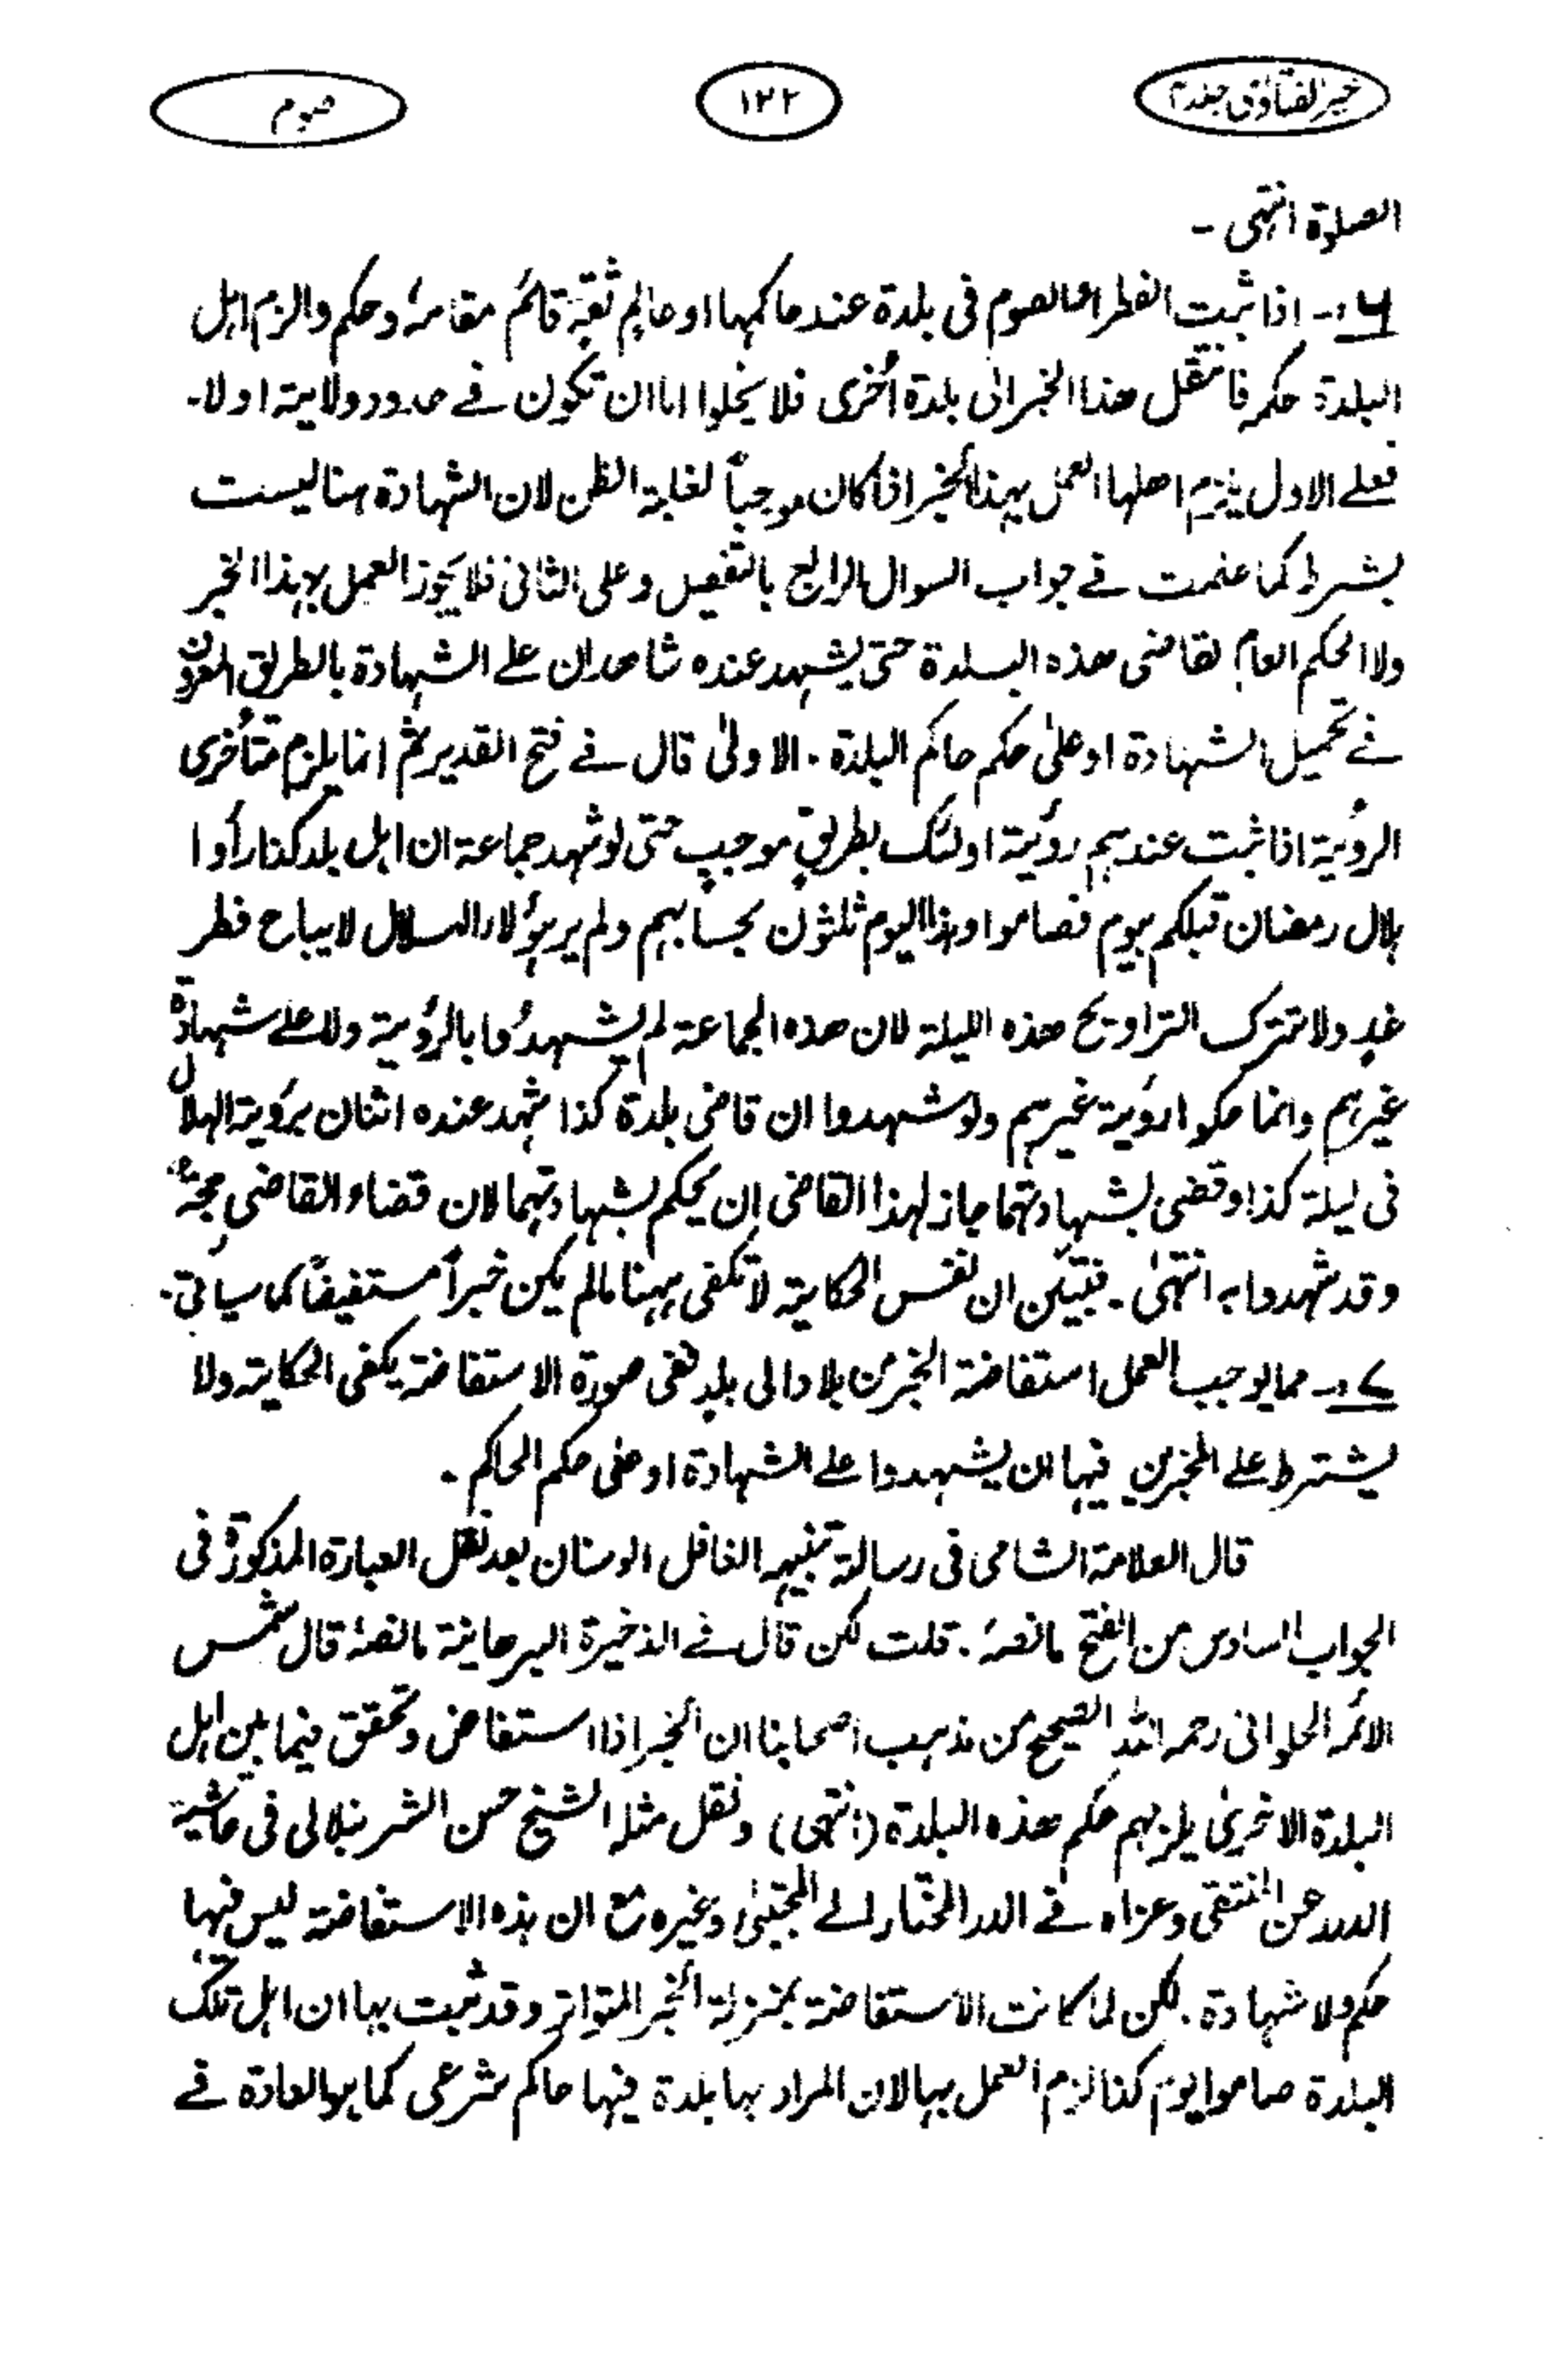 خیر الفتاویٰ جلد ۴
۱۲۲
صوم
الصلوة انتهى -
۶ :- اذا ثبت الفطر او الصوم فى بلدة عند حاكمها او عالم ثقة قائم مقامه وحكم والزم اهل
البلدة حكمه فانتقل هذا الخبر الى بلدة اُخرى فلا يخلوا اما ان تكون فے حدود ولايته او لا۔
فعلے الاول يلزم اهلها العمل بهذا الخبر اذا كان موجباً لغلبة الظن لان الشهادة هنا ليست
بشرط كما علمت فے جواب السوال الرابع بالتفصيل وعلى الثانى فلا يجوز العمل بهذا الخبر
ولا الحكم العام لقاضى هذه البلدة حتى يشهد عنده شاهدان علے الشهادة بالطريق المعروف
فے تحميل الشهادة او علىٰ حكم حاكم البلدة۔ الاولىٰ قال فے فتح القدير ثم انما يلزم متأخرى
الرؤية اذا ثبت عندهم رؤية اولئك بطريق موجب حتى لو شهد جماعة ان اهل بلد كذا رأوا
هلال رمضان قبلكم بيوم فصاموا وهذا اليوم ثلثون بحسابهم ولم ير هؤلاء الهلال لا يباح فطر
غدٍ ولا تترك التراويح هذه الليلة لان هذه الجماعة لم يشهدوا بالرؤية ولا علے شهادة
غيرهم وانما حكوا رؤية غيرهم ولو شهدوا ان قاضى بلدة كذا شهد عنده اثنان برؤية الهلال
فى ليلة كذا وقضى بشهادتهما جاز لهذا القاضى ان يحكم بشهادتهما لان قضاء القاضى حجة
وقد شهدوا به انتهىٰ۔ فتبين ان نفس الحكاية لا تكفى ههنا مالم يكن خبراً مستفيضاً كما سياتى۔
۷ :- مما يوجب العمل استفاضة الخبر من بلاد الى بلدٍ ففى صورة الاستفاضة يكفى الحكاية ولا
يشترط على المخبرين فيها ان يشهدوا علے الشهادة او على حكم الحاكم۔
قال العلامة الشامى فى رسالة تنبيه الغافل الوسنان بعد نقل العبارة المذكورة فى
الجواب السادس من الفتح ما نصهٗ۔ قلت لكن قال فے الذخيرة البرهانية ما نصهٗ قال شمس
الائمه الحلوانى رحمه الله الصحيح من مذهب اصحابنا ان الخبر اذا استفاض وتحقق فيما بين اهل
البلدة الاخرىٰ يلزمهم حكم هذه البلدة (انتهى) ونقل مثله الشيخ حسن الشرنبلالى فى حاشية
الدرر عن المنتقى وعزاه فے الدر المختار الے المجتبىٰ وغيره مع ان هذه الاستفاضة ليس فيها
حكم ولا شهادة۔ لكن لما كانت الاستفاضة بمنزلة الخبر المتواتر وقد ثبت بها ان اهل تلك
البلدة صاموا يوم كذا لزم العمل بها لان المراد بها بلدة فيها حاكم شرعى كما هو العادة فے